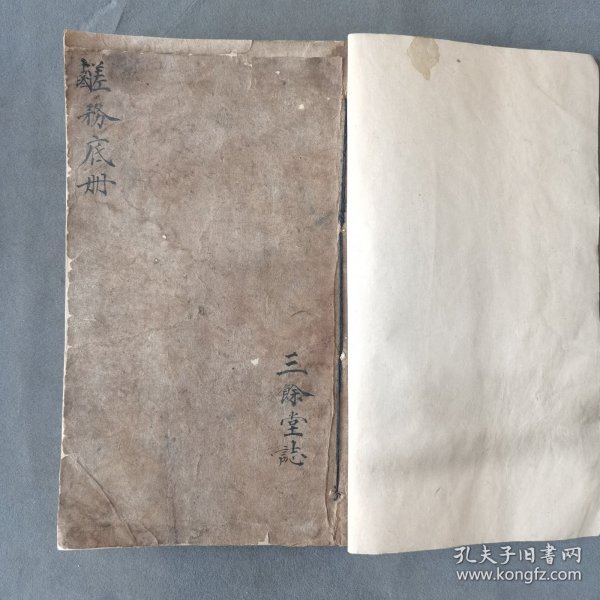 鹾務底册
三餘堂誌
孔夫子旧书网
www.kongfz.com